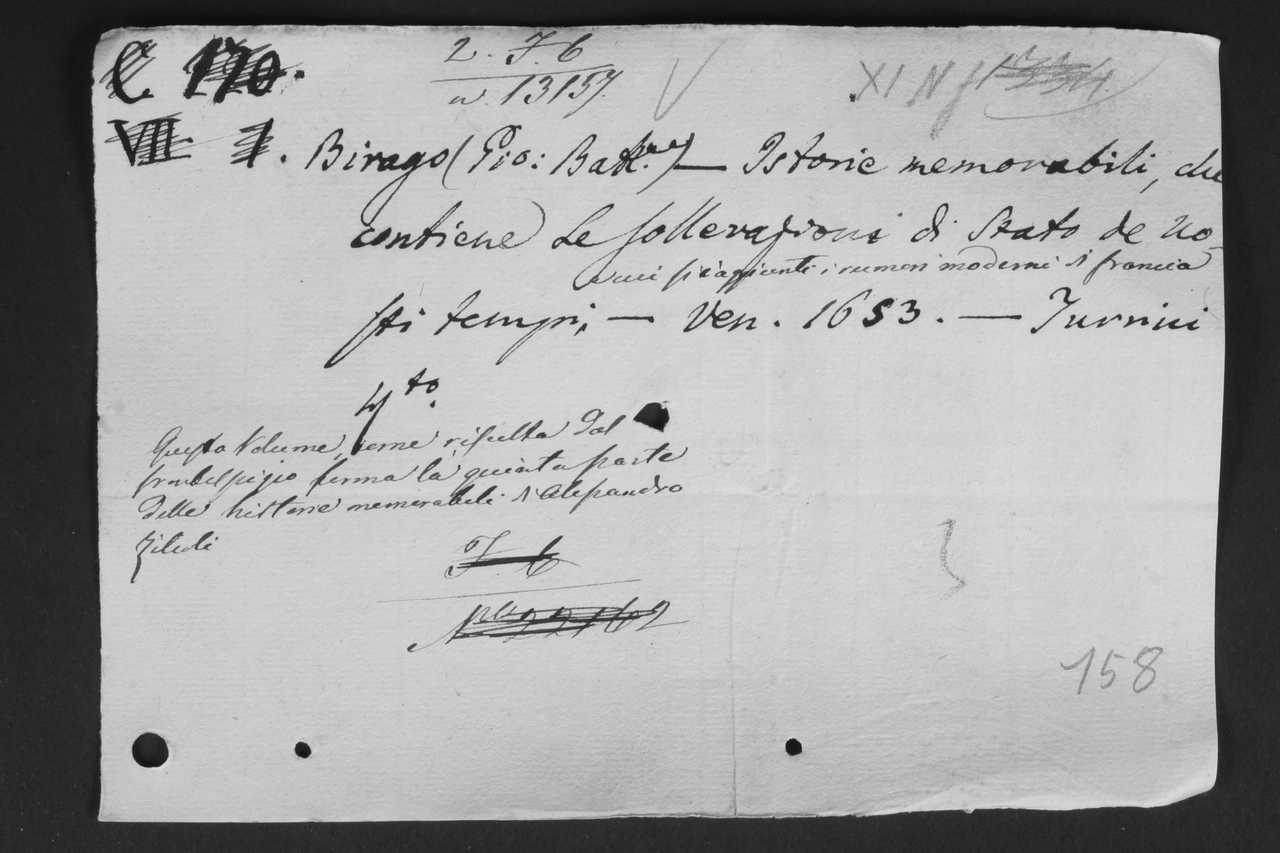 C. 170.
2. J. 6
n. 13157.
XI N
VII 1. Birago (Gio: Batt.) — Istorie memorabili, che
contiene Le sollevazioni di Stato de no-
sti tempi, — Ven. 1653. — Turrini
i rumori moderni di francia
4.to
Questo Volume, come risulta dal
frontespizio forma la quinta parte
delle historie memorabili di Alessandro
Ziloli
J. 6
22162
158